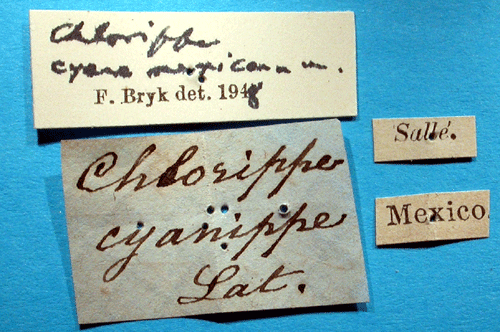 Chlorippe
cyane mexicana m.
F. Bryk det. 1948
Chlorippe
cyanippe
Lat.
Sallé.
Mexico